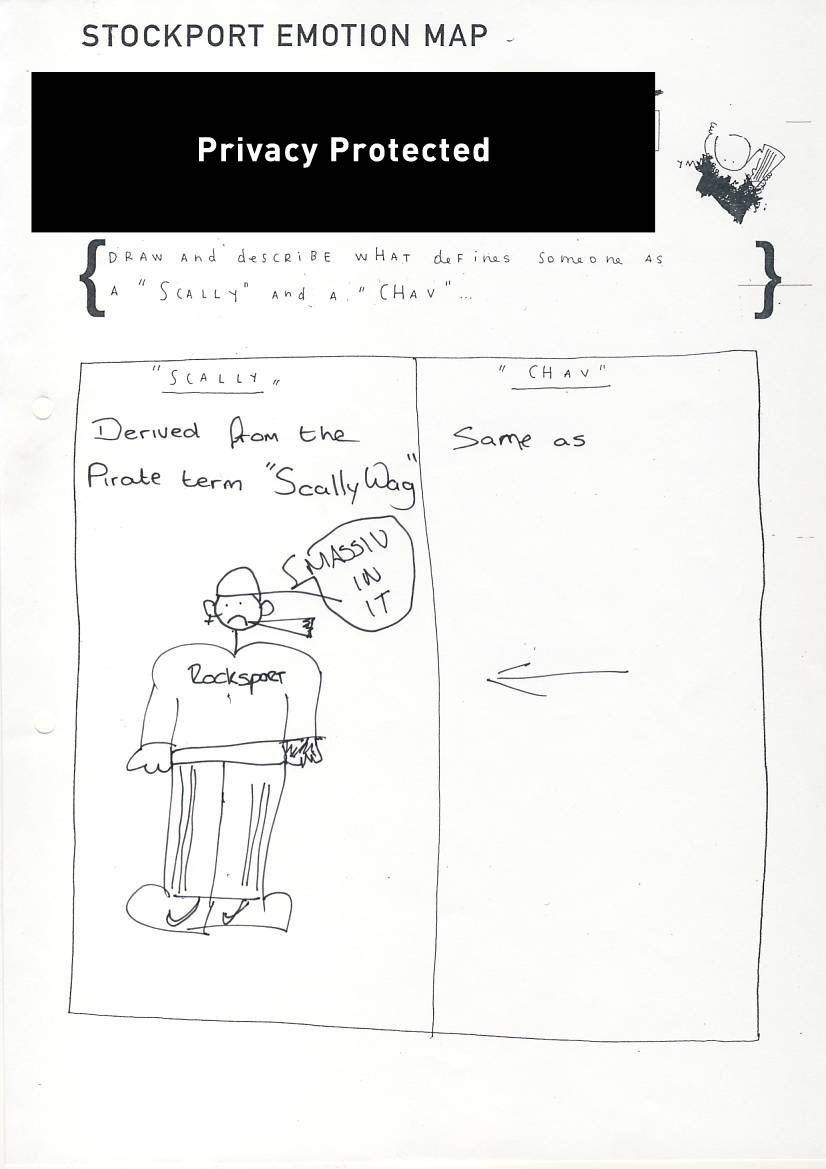 STOCKPORT EMOTION MAP
Privacy Protected
DRAW And deSCRiBE WHAT deFines Someone AS
A "SCALLY" and A "CHAV"...
"SCALLY"
"CHAV"
Derived from the
Pirate term "ScallyWag"
Same as
MASSIV
IN
IT
Rocksport